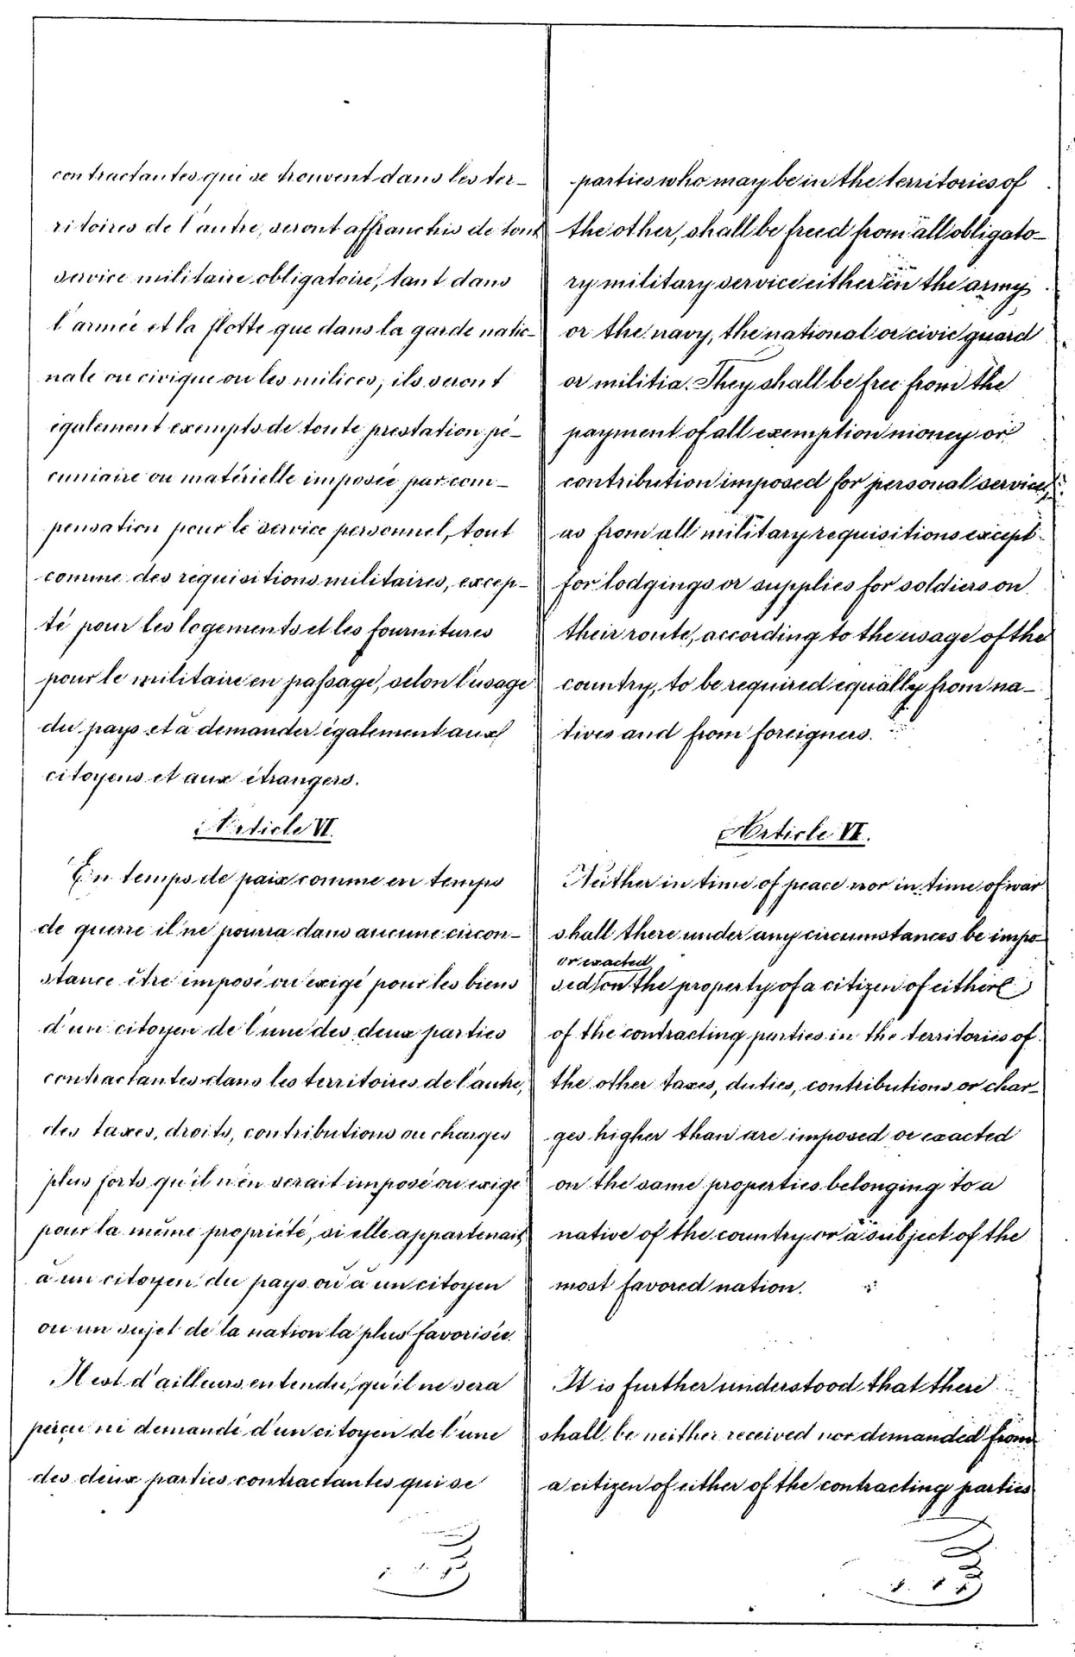 contractantes qui se trouvent dans les ter-
ritoires de l'autre, seront affranchis de tout
service militaire obligatoire, tant dans
l'armée et la flotte que dans la garde natio-
nale ou civique ou les milices; ils seront
également exempts de toute prestation pé-
cuniaire ou matérielle imposée par com-
pensation pour le service personnel, tout
comme des réquisitions militaires, excep-
té pour les logements et les fournitures
pour le militaire en passage, selon l'usage
du pays et à demander également aux
citoyens et aux étrangers.
Article VI.
En temps de paix comme en temps
de guerre il ne pourra dans aucune circon-
stance être imposé ou exigé pour les biens
d'un citoyen de l'une des deux parties
contractantes dans les territoires de l'autre,
des taxes, droits, contributions ou charges
plus forts qu'il n'en serait imposé ou exigé
pour la même propriété, si elle appartenait
à un citoyen du pays ou à un citoyen
ou un sujet de la nation la plus favorisée.
Il est d'ailleurs entendu, qu'il ne sera
perçu ni demandé d'un citoyen de l'une
des deux parties contractantes qui se
parties who may be in the territories of
the other, shall be freed from all obligato-
ry military service either in the army
or the navy, the national or civic guard
or militia. They shall be free from the
payment of all exemption money or
contribution imposed for personal service,
as from all military requisitions except
for lodgings or supplies for soldiers on
their route, according to the usage of the
country, to be required equally from na-
tives and from foreigners.
Article VI.
Neither in time of peace nor in time of war
shall there under any circumstances be impo-
or exacted
sed on the property of a citizen of either
of the contracting parties in the territories of
the other taxes, duties, contributions or char-
ges higher than are imposed or exacted
on the same properties belonging to a
native of the country or a subject of the
most favored nation.
It is further understood that there
shall be neither received nor demanded from
a citizen of either of the contracting parties